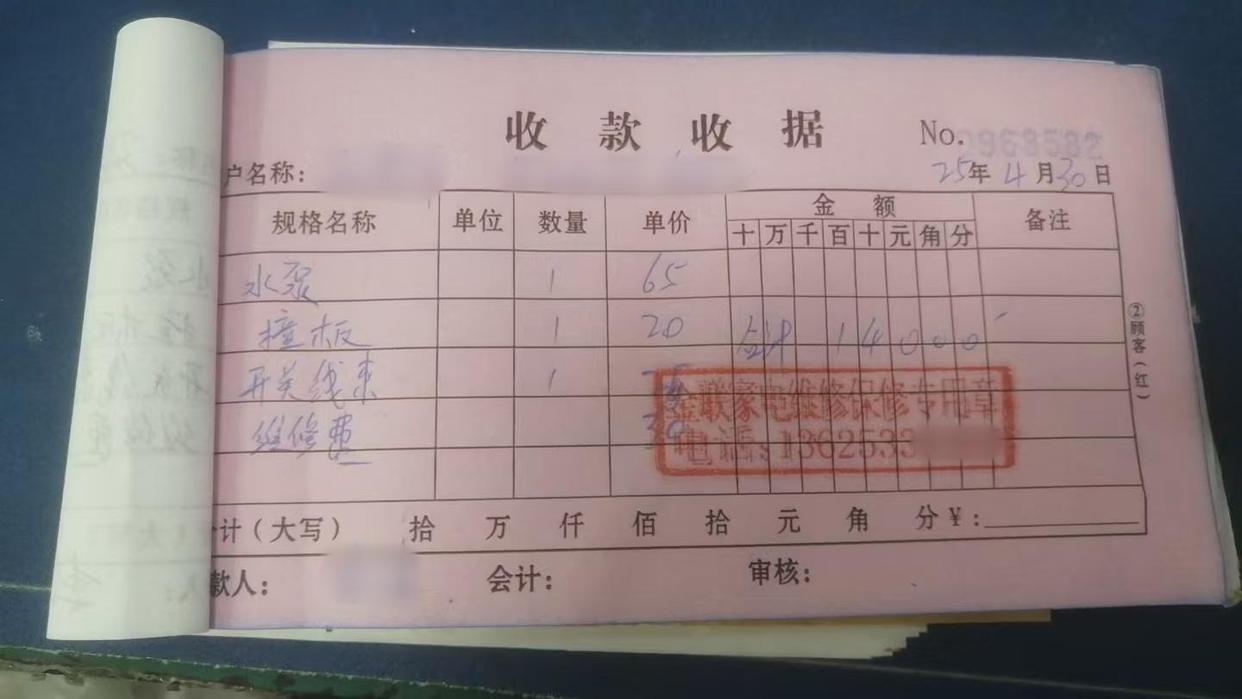 收款收据
No.0968582
户名称：
25年4月30日
规格名称 单位 数量 单价 金额 备注
十万千百十元角分
水泵 1 65
撞板 1 20 合计 14000
开关线束 1
维修费
金联家电维修保修专用章
电话:13625533
计（大写） 拾 万 仟 佰 拾 元 角 分￥:
款人： 会计： 审核：
②顾客（红）